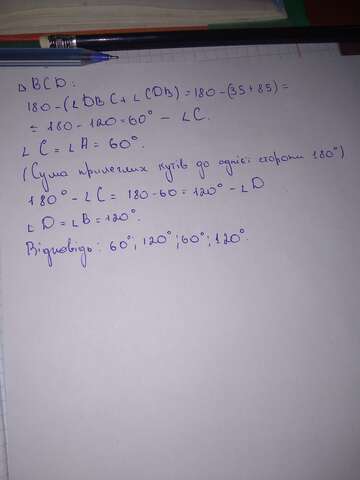 Δ BCD:
180-(∠DBC+∠CDB)=180-(35+85)=
= 180-120=60° - ∠C.
∠C=∠A=60°.
(Сума прилеглих кутів до однієї сторони 180°)
180° - ∠C = 180-60=120° - ∠D
∠D=∠B=120°.
Відповідь: 60°; 120°; 60°; 120°.